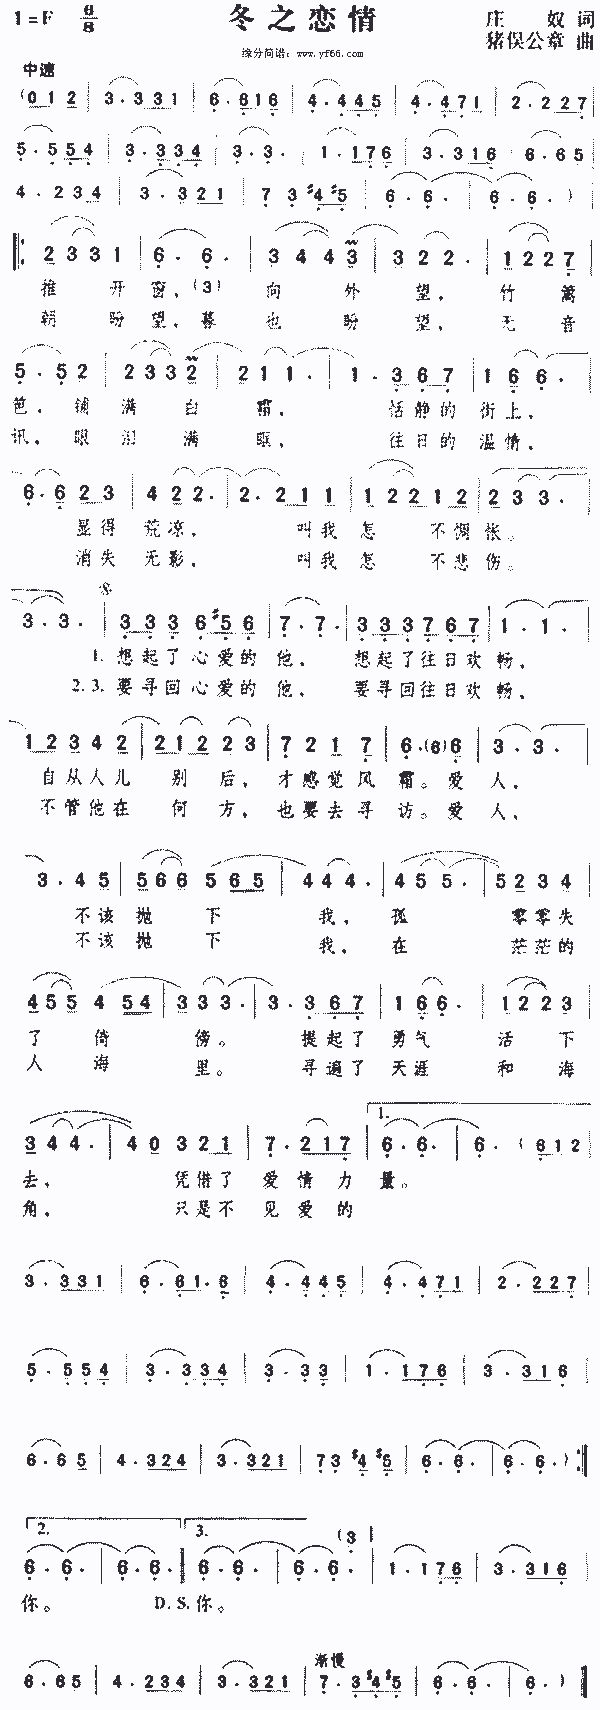 冬之恋情
1=F 6/8
庄 奴 词
猪俣公章 曲
缘分简谱: www.yf66.com
中速
(0 1 2 | 3 · 3 3 1 | 6 · 6 1 6 | 4 · 4 4 5 | 4 · 4 7 1 | 2 · 2 2 7
5 · 5 5 4 | 3 · 3 3 4 | 3 · 3 · | 1 · 1 7 6 | 3 · 3 1 6 | 6 · 6 5
4 · 2 3 4 | 3 · 3 2 1 | 7 3 #4 #5 | 6 · 6 · | 6 · 6 · )
2 3 3 1 | 6 · 6 · | 3 4 4 3 | 3 2 2 · | 1 2 2 7
推 开 窗, (3) 向 外 望, 竹 篱
朝 盼 望, 暮 也 盼 望, 无 音
5 · 5 2 | 2 3 3 2 | 2 1 1 · | 1 · 3 6 7 | 1 6 6 ·
笆, 铺 满 白 霜, 恬静的 街上,
讯, 眼 泪 满 眶, 往日的 温情,
6 · 6 2 3 | 4 2 2 · | 2 · 2 1 1 | 1 2 2 1 2 | 2 3 3 ·
显得 荒凉, 叫我 怎 不惆怅。
消失 无影, 叫我 怎 不悲伤。
3 · 3 · | 3 3 3 6 #5 6 | 7 · 7 · | 3 3 3 7 6 7 | 1 · 1 ·
1. 想起了心爱的 他, 想起了往日欢 畅,
2. 3. 要寻回心爱的 他, 要寻回往日欢 畅,
1 2 3 4 2 | 2 1 2 2 3 | 7 2 1 7 | 6 · (6) 6 | 3 · 3 ·
自从人儿 别 后, 才感觉风 霜。爱 人,
不管他在 何 方, 也要去寻 访。爱 人,
3 · 4 5 | 5 6 6 5 6 5 | 4 4 4 · | 4 5 5 · | 5 2 3 4
不该 抛 下 我, 孤 零零失
不该 抛 下 我, 在 茫茫的
4 5 5 4 5 4 | 3 3 3 · | 3 · 3 6 7 | 1 6 6 · | 1 2 2 3
了 倚 傍。 提起了 勇气 活 下
人 海 里。 寻遍了 天涯 和 海
3 4 4 · | 4 0 3 2 1 | 7 · 2 1 7 | 1. 6 · 6 · | 6 · ( 6 1 2
去, 凭借了 爱 情 力 量。
角, 只是不 见 爱 的
3 · 3 3 1 | 6 · 6 1 · 6 | 4 · 4 4 5 | 4 · 4 7 1 | 2 · 2 2 7
5 · 5 5 4 | 3 · 3 3 4 | 3 · 3 3 | 1 · 1 7 6 | 3 · 3 1 6
6 · 6 5 | 4 · 3 2 4 | 3 · 3 2 1 | 7 3 #4 #5 | 6 · 6 · | 6 · 6 · ) :
2. 6 · 6 · | 6 · 6 · 3. 6 · 6 · | 6 · 6 · (3 | 1 · 1 7 6 | 3 · 3 1 6
你。 D.S. 你。
渐慢
6 · 6 5 | 4 · 2 3 4 | 3 · 3 2 1 | 7 · 3 #4 #5 | 6 · 6 · | 6 · )